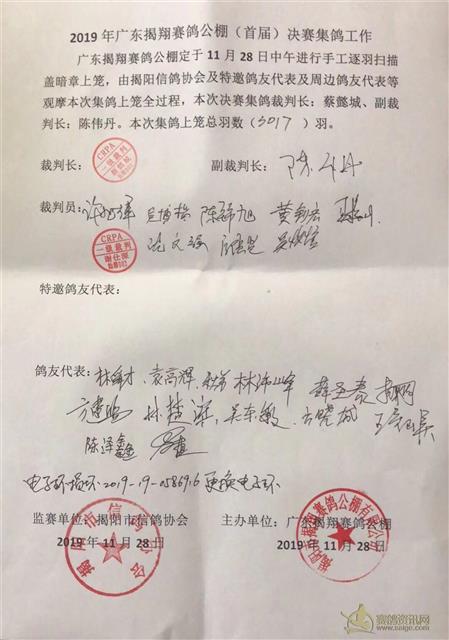 2019 年广东揭翔赛鸽公棚（首届）决赛集鸽工作
广东揭翔赛鸽公棚定于 11 月 28 日中午进行手工逐羽扫描
盖暗章上笼，由揭阳信鸽协会及特邀鸽友代表及周边鸽友代表等
观摩本次集鸽上笼全过程，本次决赛集鸽裁判长：蔡懿城、副裁
判长：陈伟丹。本次集鸽上笼总羽数（3017）羽。
裁判长： CRPA 二级裁判 副裁判长：陈伟丹
裁判员： 陈 旭 黄
CRPA 一级裁判 谢仕深
特邀鸽友代表：
鸽友代表：林 才 袁高辉 林 峰 薛
方 林楚 吴东敏 方晓城
陈泽鑫
电子环损坏2019-19-058696更换电子环
监赛单位：揭阳市信鸽协会 主办单位：广东揭翔赛鸽公棚
2019 年 11 月 28 日 2019 年 11 月 28 日
揭阳市信鸽协会 揭阳市揭翔赛鸽公棚有限公司
赛鸽资讯网
www.saige.com